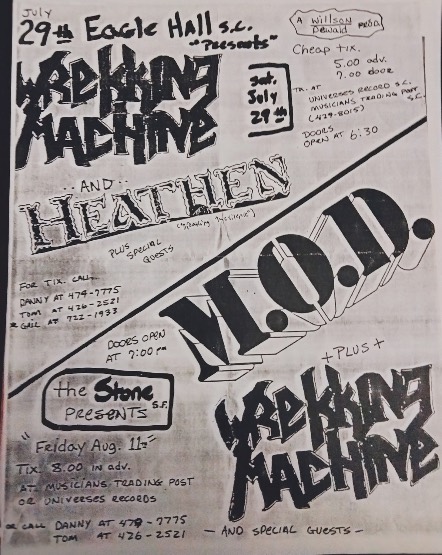 July
29th Eagle Hall S.C.
"Presents"
A Willson
Dewald PROD.
Cheap tix.
5.00 adv.
7.00 door
TIX. AT
UNIVERSES RECORD S.C.
MUSICIANS TRADING POST
S.C.
(429-8015)
DOORS
OPEN AT 6:30
WREKKING
MACHINE
Sat.
July
29th
··AND··
HEATHEN
PLUS
SPECIAL
GUESTS
FOR TIX. CALL
DANNY AT 479-7775
TOM AT 426-2521
OR GAIL AT 722-1933
M.O.D.
DOORS OPEN
AT 7:00 PM
the Stone
S.F.
PRESENTS
+PLUS+
WREKKING
MACHINE
"Friday Aug. 11th"
TIX. 8.00 IN adv.
AT MUSICIANS TRADING POST
OR UNIVERSES RECORDS
OR CALL DANNY AT 479-7775
TOM AT 426-2521
— AND SPECIAL GUESTS —